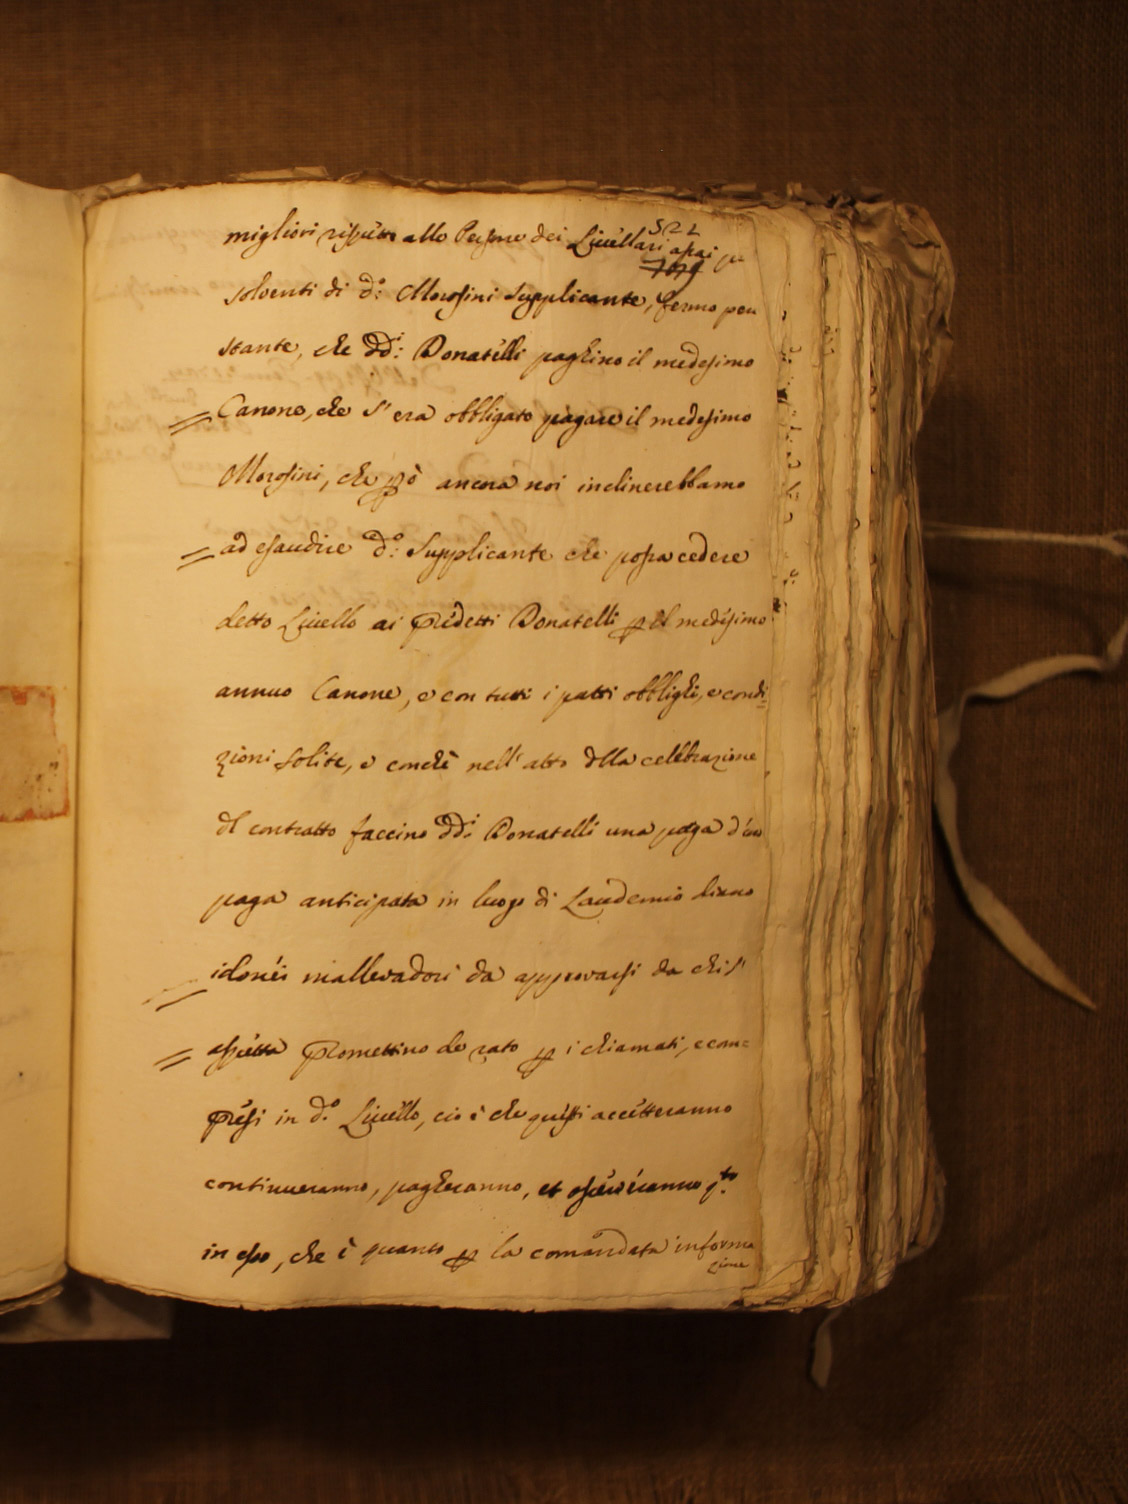 522
migliori rispetto alle Persone dei Livellari assai più
solventi di d.º Morosini Supplicante, fermo però
stante, che dd.i Donatelli paghino il medesimo
Canone, che s' era obbligato pagare il medesimo
Morosini, che però ancora noi inclineressimo
ad esaudire d.º Supplicante che possa cedere
detto Livello ai predetti Donatelli per il medesimo
annuo Canone, e con tutti i patti obblighi, e condi=
zioni solite, e conchè nell' atto della celebrazione
del contratto faccino dd.i Donatelli una paga d' una
paga anticipata in luogo di Laudemio diano
idonei mallevadori da approvarsi da chi s'
aspetta promettino de rato per i chiamati, e com=
presi in d.º Livello, cio è che questi accetteranno
continueranno, pagheranno, et osserveranno q.to
in esso, che è quanto per la comandata informa
zione